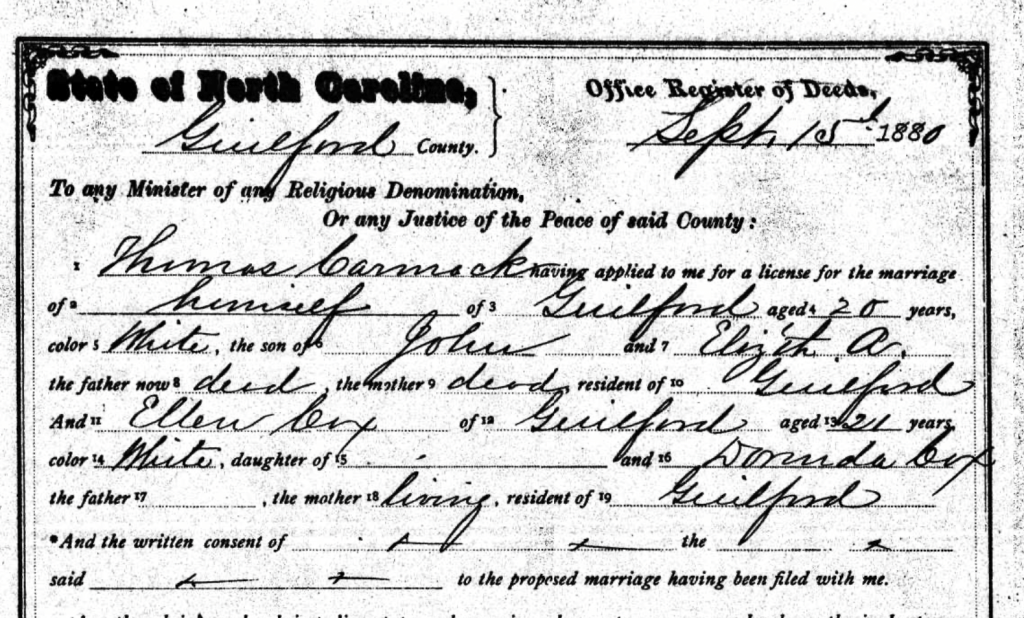 State of North Carolina,
Office Register of Deeds,
Guilford County.
Sept 15th 1880
To any Minister of any Religious Denomination,
Or any Justice of the Peace of said County:
1 Thomas Carmack having applied to me for a license for the marriage
of 2 himself of 3 Guilford aged 4 20 years,
color 5 White, the son of 6 John and 7 Elizth A.
the father now 8 dead, the mother 9 dead, resident of 10 Guilford
And 11 Ellen Cox of 12 Guilford aged 13 21 years,
color 14 White, daughter of 15 and 16 Dorinda Cox
the father 17 , the mother 18 living, resident of 19 Guilford
*And the written consent of the
said to the proposed marriage having been filed with me.